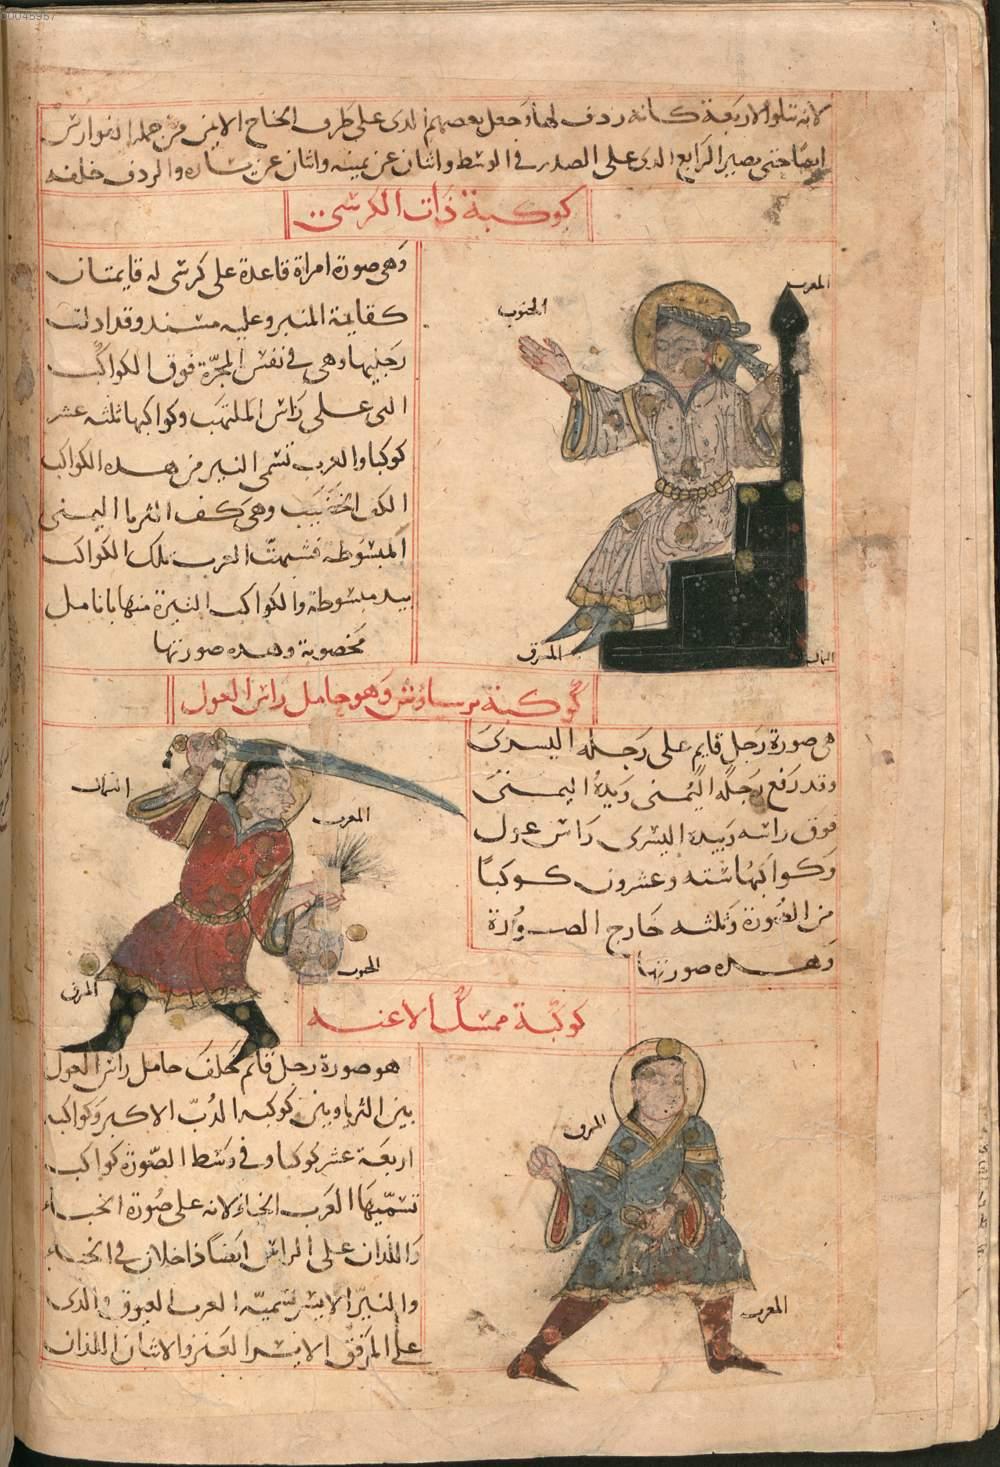 00045957
لانه تتلوا الاربعة كانه ردف لها وجعل بعضهم الذى على طرف الجناح الايمن من جملة الفوارس
ايضا حتى يصير الرابع الذى على الصدر فى الوسط واثنان عن يمينه واثنان عن يساره والردف خلفه
كوكبة ذات الكرسى
وهى صورة امراة قاعدة على كرسى له قايمتان
كقايمة المنبر وعليه مسند وقد ادلت
رجليها وهى فى نفس المجرة فوق الكواكب
التى على راس الملتهب وكواكبها ثلثه عشر
كوكبا والعرب تسمى النير من هذه الكواكب
الكف الخضيب وهى كف الثريا اليمنى
المبسوطه فشبهت العرب تلك الكواكب
بيد مبسوطة والكواكب النيرة منها بانامل
مخضوبة وهذه صورتها
المغرب
الجنوب
المشرق
الشمال
كوكبة برساوش وهو حامل راس الغول
هى صورة رجل قايم على رجله اليسرى
وقد رفع رجله اليمنى ويده اليمنى
فوق راسه وبيده اليسرى راس غول
وكواكبها سته وعشرون كوكبا
من الصورة وثلثه خارج الصورة
وهذه صورتها
الشمال
المغرب
الجنوب
المشرق
كوكبة ممسك الاعنه
هو صورة رجل قايم خلف حامل راس الغول
بين الثريا وبين كوكبه الدب الاكبر وكواكبه
اربعة عشر كوكبا وفى وسط الصورة كواكب
تسميها العرب الخباء لانه على صورة الخباء
واللذان على الراس ايضا داخلان فى الخباء
والنير الايسر تسميه العرب العيوق والذى
على المرفق الايسر العنز والاثنان اللذان
المشرق
المغرب